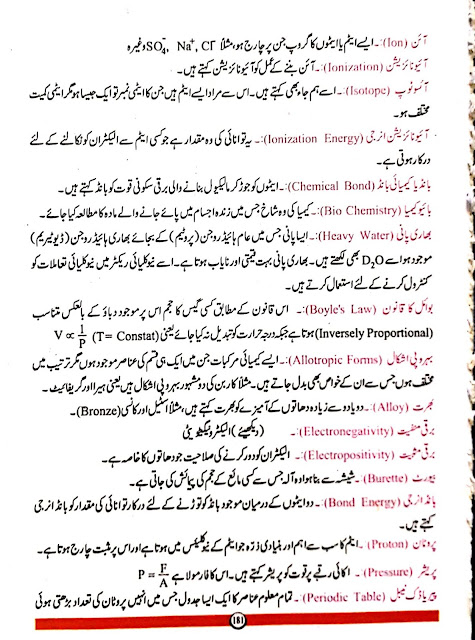 آئن (Ion):۔ ایسے ایٹم یا ایٹموں کا گروپ جن پر چارج ہو، مثلاً SO₄⁻, Na⁺, Cl⁻ وغیرہ
آئیونائزیشن (Ionization):۔ آئن بننے کے عمل کو آئیونائزیشن کہتے ہیں۔
آئسوٹوپ (Isotope):۔ اسے ہم جاء بھی کہتے ہیں۔ اس سے مراد ایسے ایٹم ہیں جن کا ایٹمی نمبر تو ایک جیسا ہو مگر ایٹمی کمیت
مختلف ہو۔
آئیونائزیشن انرجی (Ionization Energy):۔ یہ توانائی کی وہ مقدار ہے جو کسی ایٹم سے الیکٹران کو نکالنے کے لئے
درکار ہوتی ہے۔
بانڈ یا کیمیائی بانڈ (Chemical Bond):۔ ایٹموں کو جوڑ کر مالیکیول بنانے والی برقی سکونی قوت کو بانڈ کہتے ہیں۔
بائیو کیمیا (Bio Chemistry):۔ کیمیا کی وہ شاخ جس میں زندہ اجسام میں پائے جانے والے مادہ کا مطالعہ کیا جائے۔
بھاری پانی (Heavy Water):۔ ایسا پانی جس میں عام ہائیڈروجن (پروٹیم) کے بجائے بھاری ہائیڈروجن (ڈیوٹیریم)
موجود ہو اسے D₂O بھی لکھتے ہیں۔ بھاری پانی بہت قیمتی اور نایاب ہوتا ہے۔ اسے نیوکلیائی ریکٹر میں نیوکلیائی تعاملات کو
کنٹرول کرنے کے لئے استعمال کرتے ہیں۔
بوائل کا قانون (Boyle's Law):۔ اس قانون کے مطابق کسی گیس کا حجم اس پر موجود دباؤ کے بالعکس متناسب
(Inversely Proportional) ہوتا ہے جبکہ درجہ حرارت کو تبدیل نہ کیا جائے یعنی (T= Constat) V ∝ 1/P
بہروپی اشکال (Allotropic Forms):۔ ایسے کیمیائی مرکبات جن میں ایک ہی قسم کی عناصر موجود ہوں مگر ترتیب میں
مختلف ہوں جس سے ان کے خواص بھی بدل جاتے ہیں۔ مثلاً کاربن کی دو مشہور بہروپی اشکال ہیں یعنی ہیرا اور گریفائیٹ۔
بھرت (Alloy):۔ دو یا دو سے زیادہ دھاتوں کے آمیزے کو بھرت کہتے ہیں، مثلاً اسٹیل اور کانسی (Bronze)۔
برقی منفیت (Electronegativity):۔ (دیکھیئے) الیکٹرونیگیٹیویٹی
برقی مثبتیت (Electropositivity):۔ الیکٹران کو دور کرنے کی صلاحیت جو دھاتوں کا خاصہ ہے۔
بیورٹ (Burette):۔ شیشہ سے بنا ہوا وہ آلہ جس سے کسی مائع کے حجم کی پیمائش کی جاتی ہے۔
بانڈ انرجی (Bond Energy):۔ دو ایٹموں کے درمیان موجود بانڈ کو توڑنے کے لئے درکار توانائی کی مقدار کو بانڈ انرجی
کہتے ہیں۔
پروٹان (Proton):۔ ایٹم کا سب سے اہم اور بنیادی ذرہ جو ایٹم کے نیوکلیئس میں ہوتا ہے اور اس پر مثبت چارج ہوتا ہے۔
پریشر (Pressure):۔ اکائی رقبے پر قوت کو پریشر کہتے ہیں۔ اس کا فارمولا ہے P = F/A
پیریاڈک ٹیبل (Periodic Table):۔ تمام معلوم عناصر کا ایک ایسا جدول جس میں انہیں پروٹان کی تعداد بڑھتی ہوئی
181